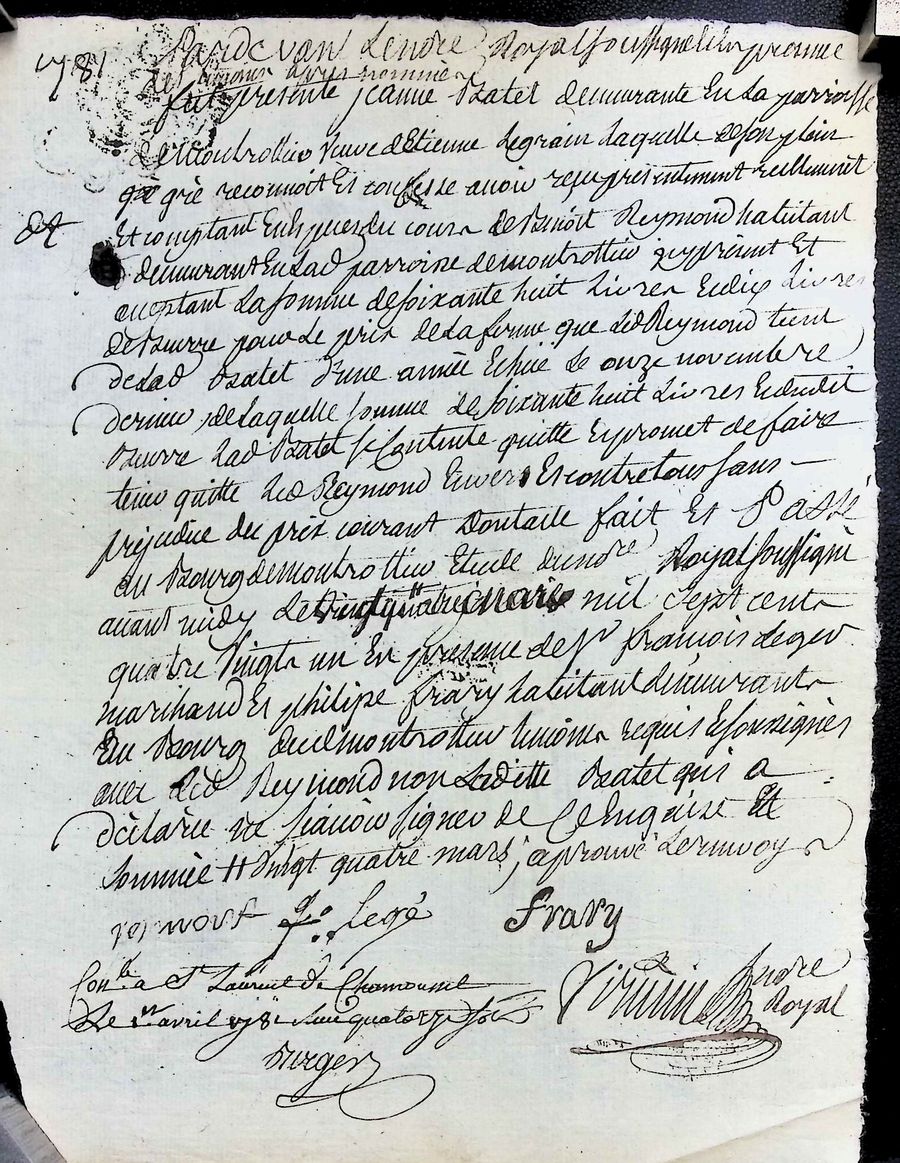 1781
Pardevan Le no.re Royal soussigné Et En presence
des temoins apres nommés
fut presente jeanne Bratet demeurante En La parroisse
de montrottier veuve d'Etienne Legrain Laquelle de son plein
gré reconnoit Et confesse avoir reçu presentement reellement
Et comptant En Especes du cours de Benoit Reymond habitant
demeurant En Lad parroisse de montrottier cy present Et
acceptant La somme de soixante huit Livres Et dix Livres
de Beurre pour Le prix de La ferme que Led Reymond tient
de Lad Bratet d'une année Echue Le onze novembre
dernier, de Laquelle somme de soixante huit Livres Et dudit
Beurre Lad Bratet se Contente quitte Et promet de faire
tenir quitte Led Reymond Envers Et contre tous sans
prejudice du prix courant dont acte fait Et Passé
au Bourg de montrottier Etude du no.re Royal soussigné
avant midy Le vingt quatre mars mil sept cent
quatre vingt un En presence de Sr françois
marchand Et philipe frary habitant demeurant
Au Bourg dud montrottier temoins requis Et soussignés
avec Led Reymond non Ladite Bratet qui a
déclaré ne sçavoir signer de Ce Enquise Et
sommée // vingt quatre mars j'aprouvé Le renvoy
reymont f. Legé Frary
Con.lé a St Laurent de Chamousset
Le 1er avril 1781 Reçu quatorze sols
Berger
no.re Royal